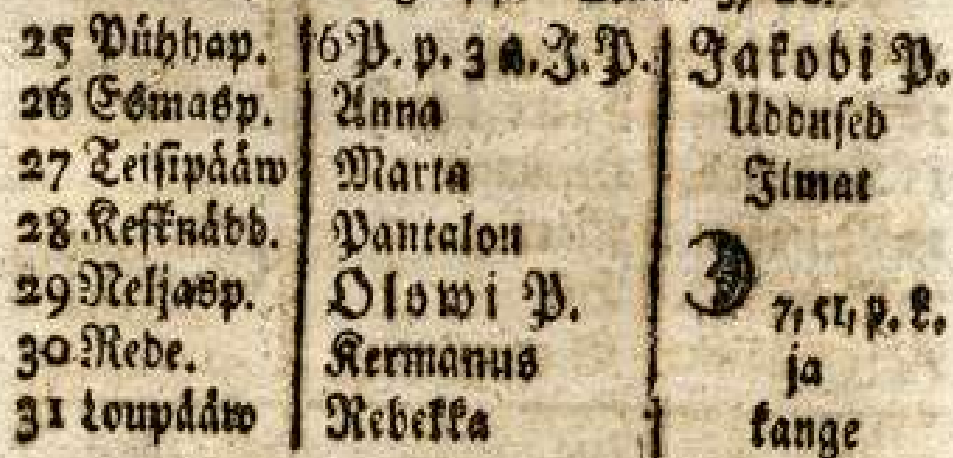 25 Pühhap. 6 P. p. 3 a. J. P. Jakobi P.
26 Esmasp. Anna Uddused
27 Teisipääw Marta Ilmat
28 Kesknädd. Pantalon
29 Neljasp. Olowi P. 7, el, p. k.
30 Rede. Kermanus ja
31 Loupääw Rebekka kange